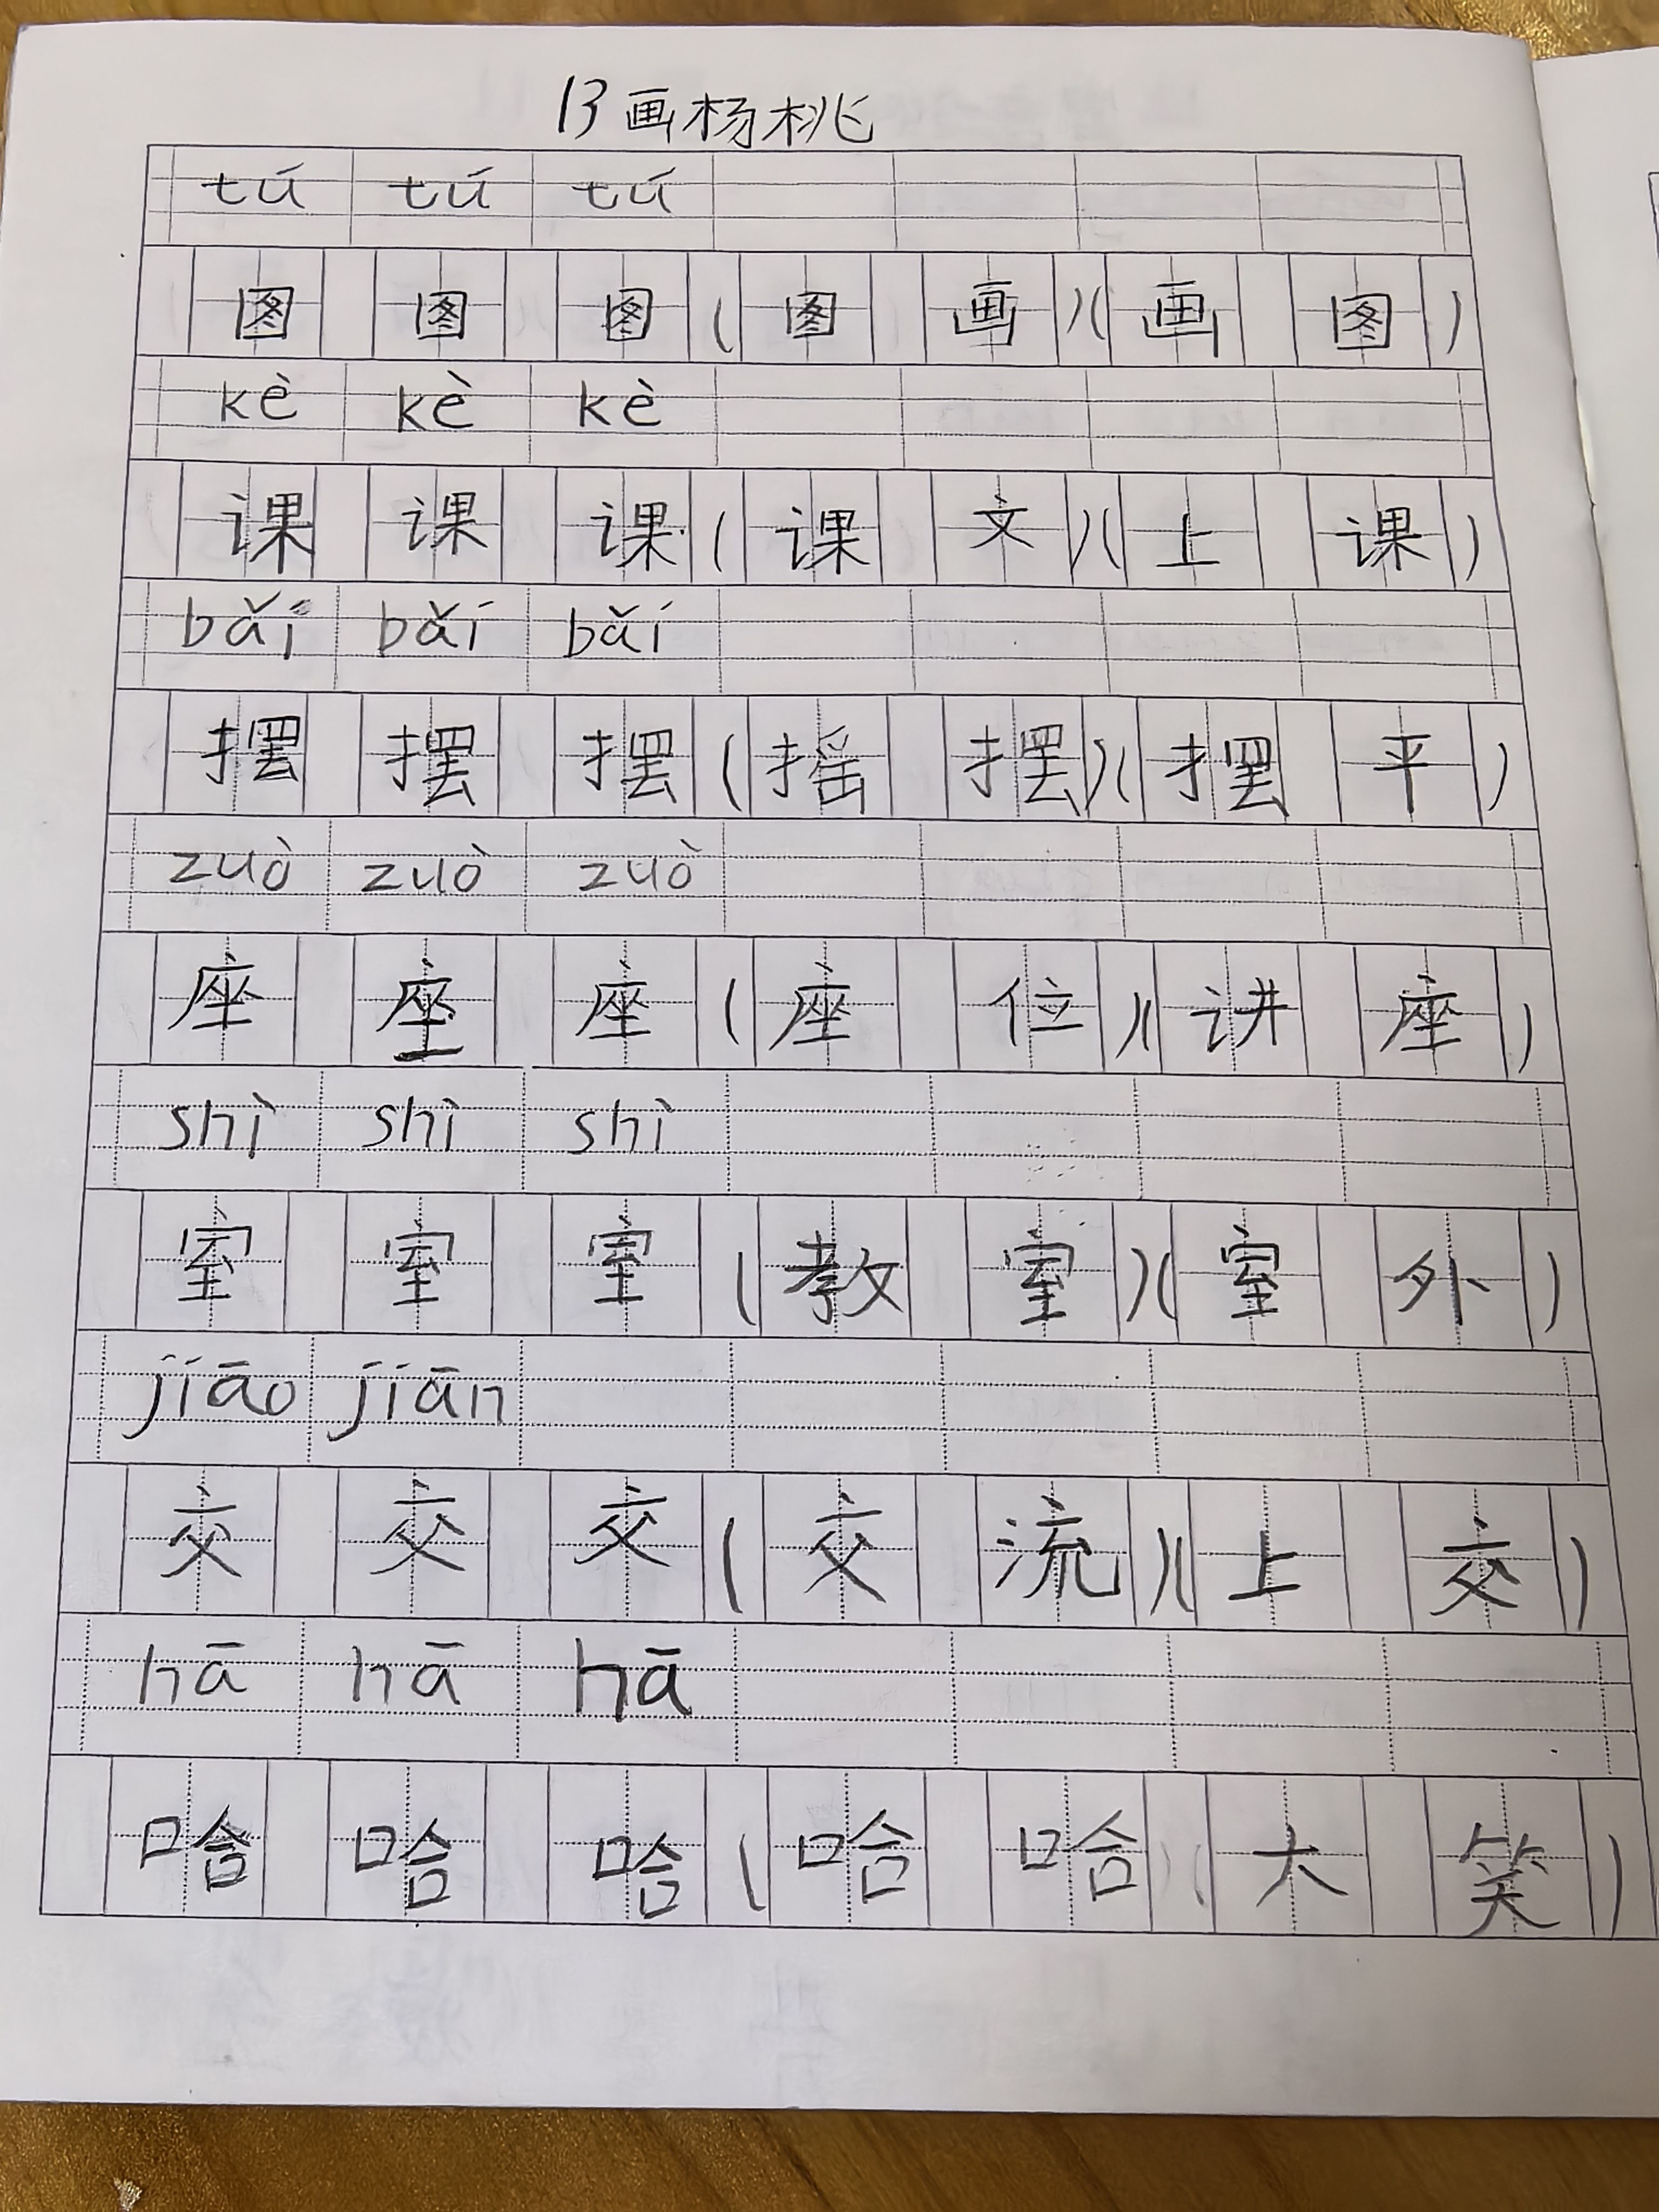 13画杨桃
tú tú tú
图 图 图 (图 画)(画 图)
kè kè kè
课 课 课 (课 文)(上 课)
bǎi bǎi bǎi
摆 摆 摆 (摇 摆)(摆 平)
zuò zuò zuò
座 座 座 (座 位)(讲 座)
shì shì shì
室 室 室 (教 室)(室 外)
jiāo jiān
交 交 交 (交 流)(上 交)
hā hā hā
哈 哈 哈 (哈 哈)(大 笑)